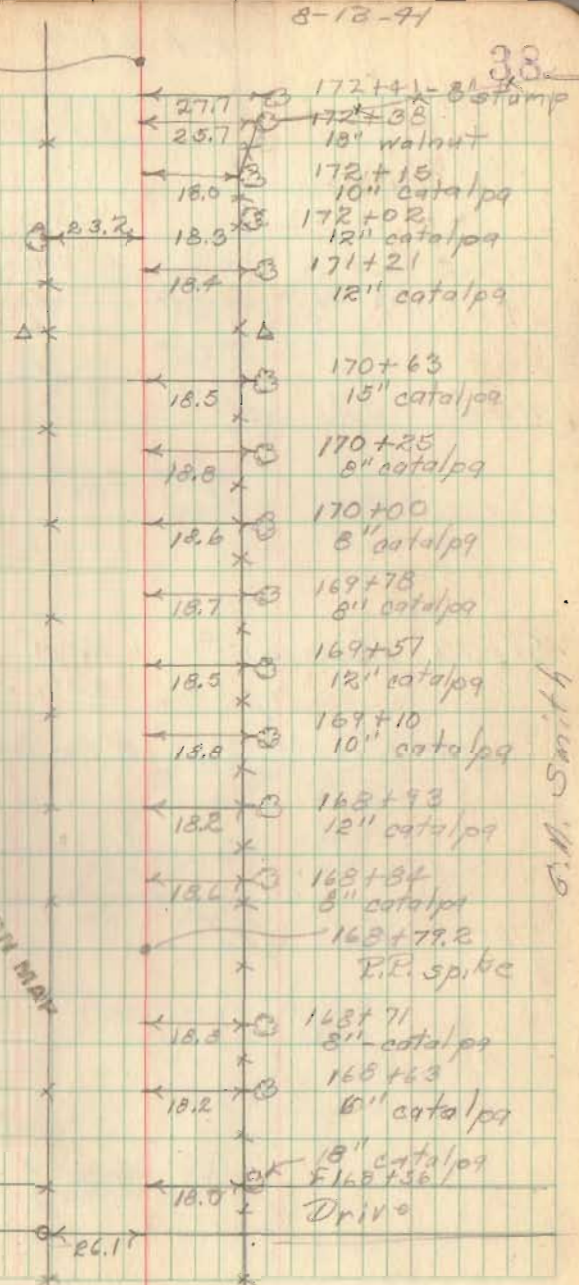 8-13-41
38
27.7 172+41- 8" stump
25.7 172+38
18" walnut
18.0 172+15
10" catalpa
23.2 18.3 172+02
12" catalpa
18.4 171+21
12" catalpa
18.5 170+63
15" catalpa
18.8 170+25
8" catalpa
18.6 170+00
8" catalpa
18.7 169+78
8" catalpa
18.5 169+57
12" catalpa
18.8 169+10
10" catalpa
18.2 168+93
12" catalpa
18.6 168+84
8" catalpa
168+79.2
P.P. spike
18.3 168+71
8" catalpa
168+63
18.2 6" catalpa
18" catalpa
18.0 168+36
Drive
26.1
Smith
MAP